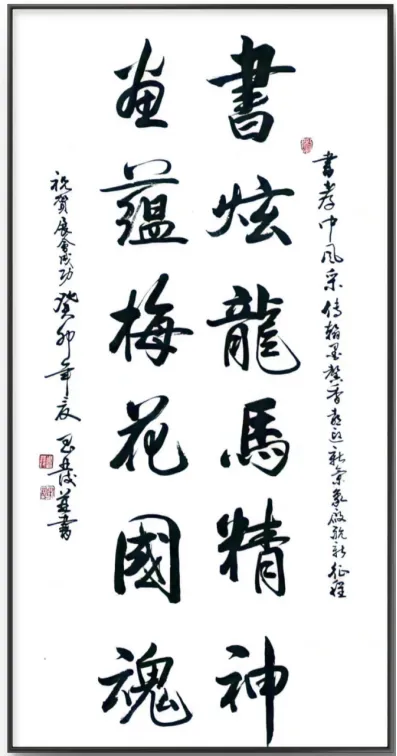 書孝中風采傳翰墨馨香喜迎新景象啟航新征程
書炫龍馬精神
畫蘊梅花國魂
祝賀展會成功 癸卯年夏 書